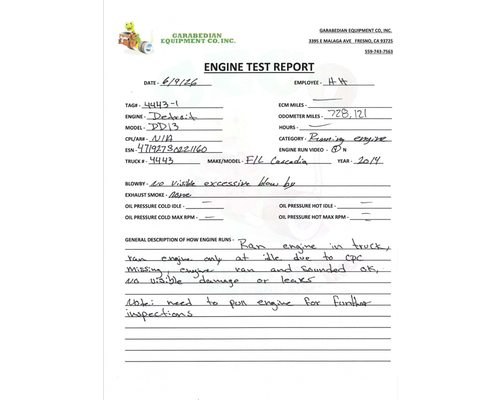 GARABEDIAN
EQUIPMENT CO, INC.
GARABEDIAN EQUIPMENT CO, INC.
3395 E MALAGA AVE FRESNO, CA 93725
559-743-7563
ENGINE TEST REPORT
DATE - 6/9/26 EMPLOYEE - HH
TAG# - 4443-1 ECM MILES - —
ENGINE - Detroit ODOMETER MILES - 728,121
MODEL - DD13 HOURS - —
CPL/AR# - N/A CATEGORY - Running engine
ESN - 471927S0221160 ENGINE RUN VIDEO - Y N
TRUCK # - 4443 MAKE/MODEL - F/L Cascadia YEAR - 2014
BLOWBY - No visible excessive blow by
EXHAUST SMOKE - None
OIL PRESSURE COLD IDLE - — OIL PRESSURE HOT IDLE - —
OIL PRESSURE COLD MAX RPM - — OIL PRESSURE HOT MAX RPM - —
GENERAL DESCRIPTION OF HOW ENGINE RUNS - Ran engine in truck,
ran engine only at idle due to CPC
missing, engine ran and sounded ok,
no visible damage or leaks
Note: need to pull engine for further
inspections